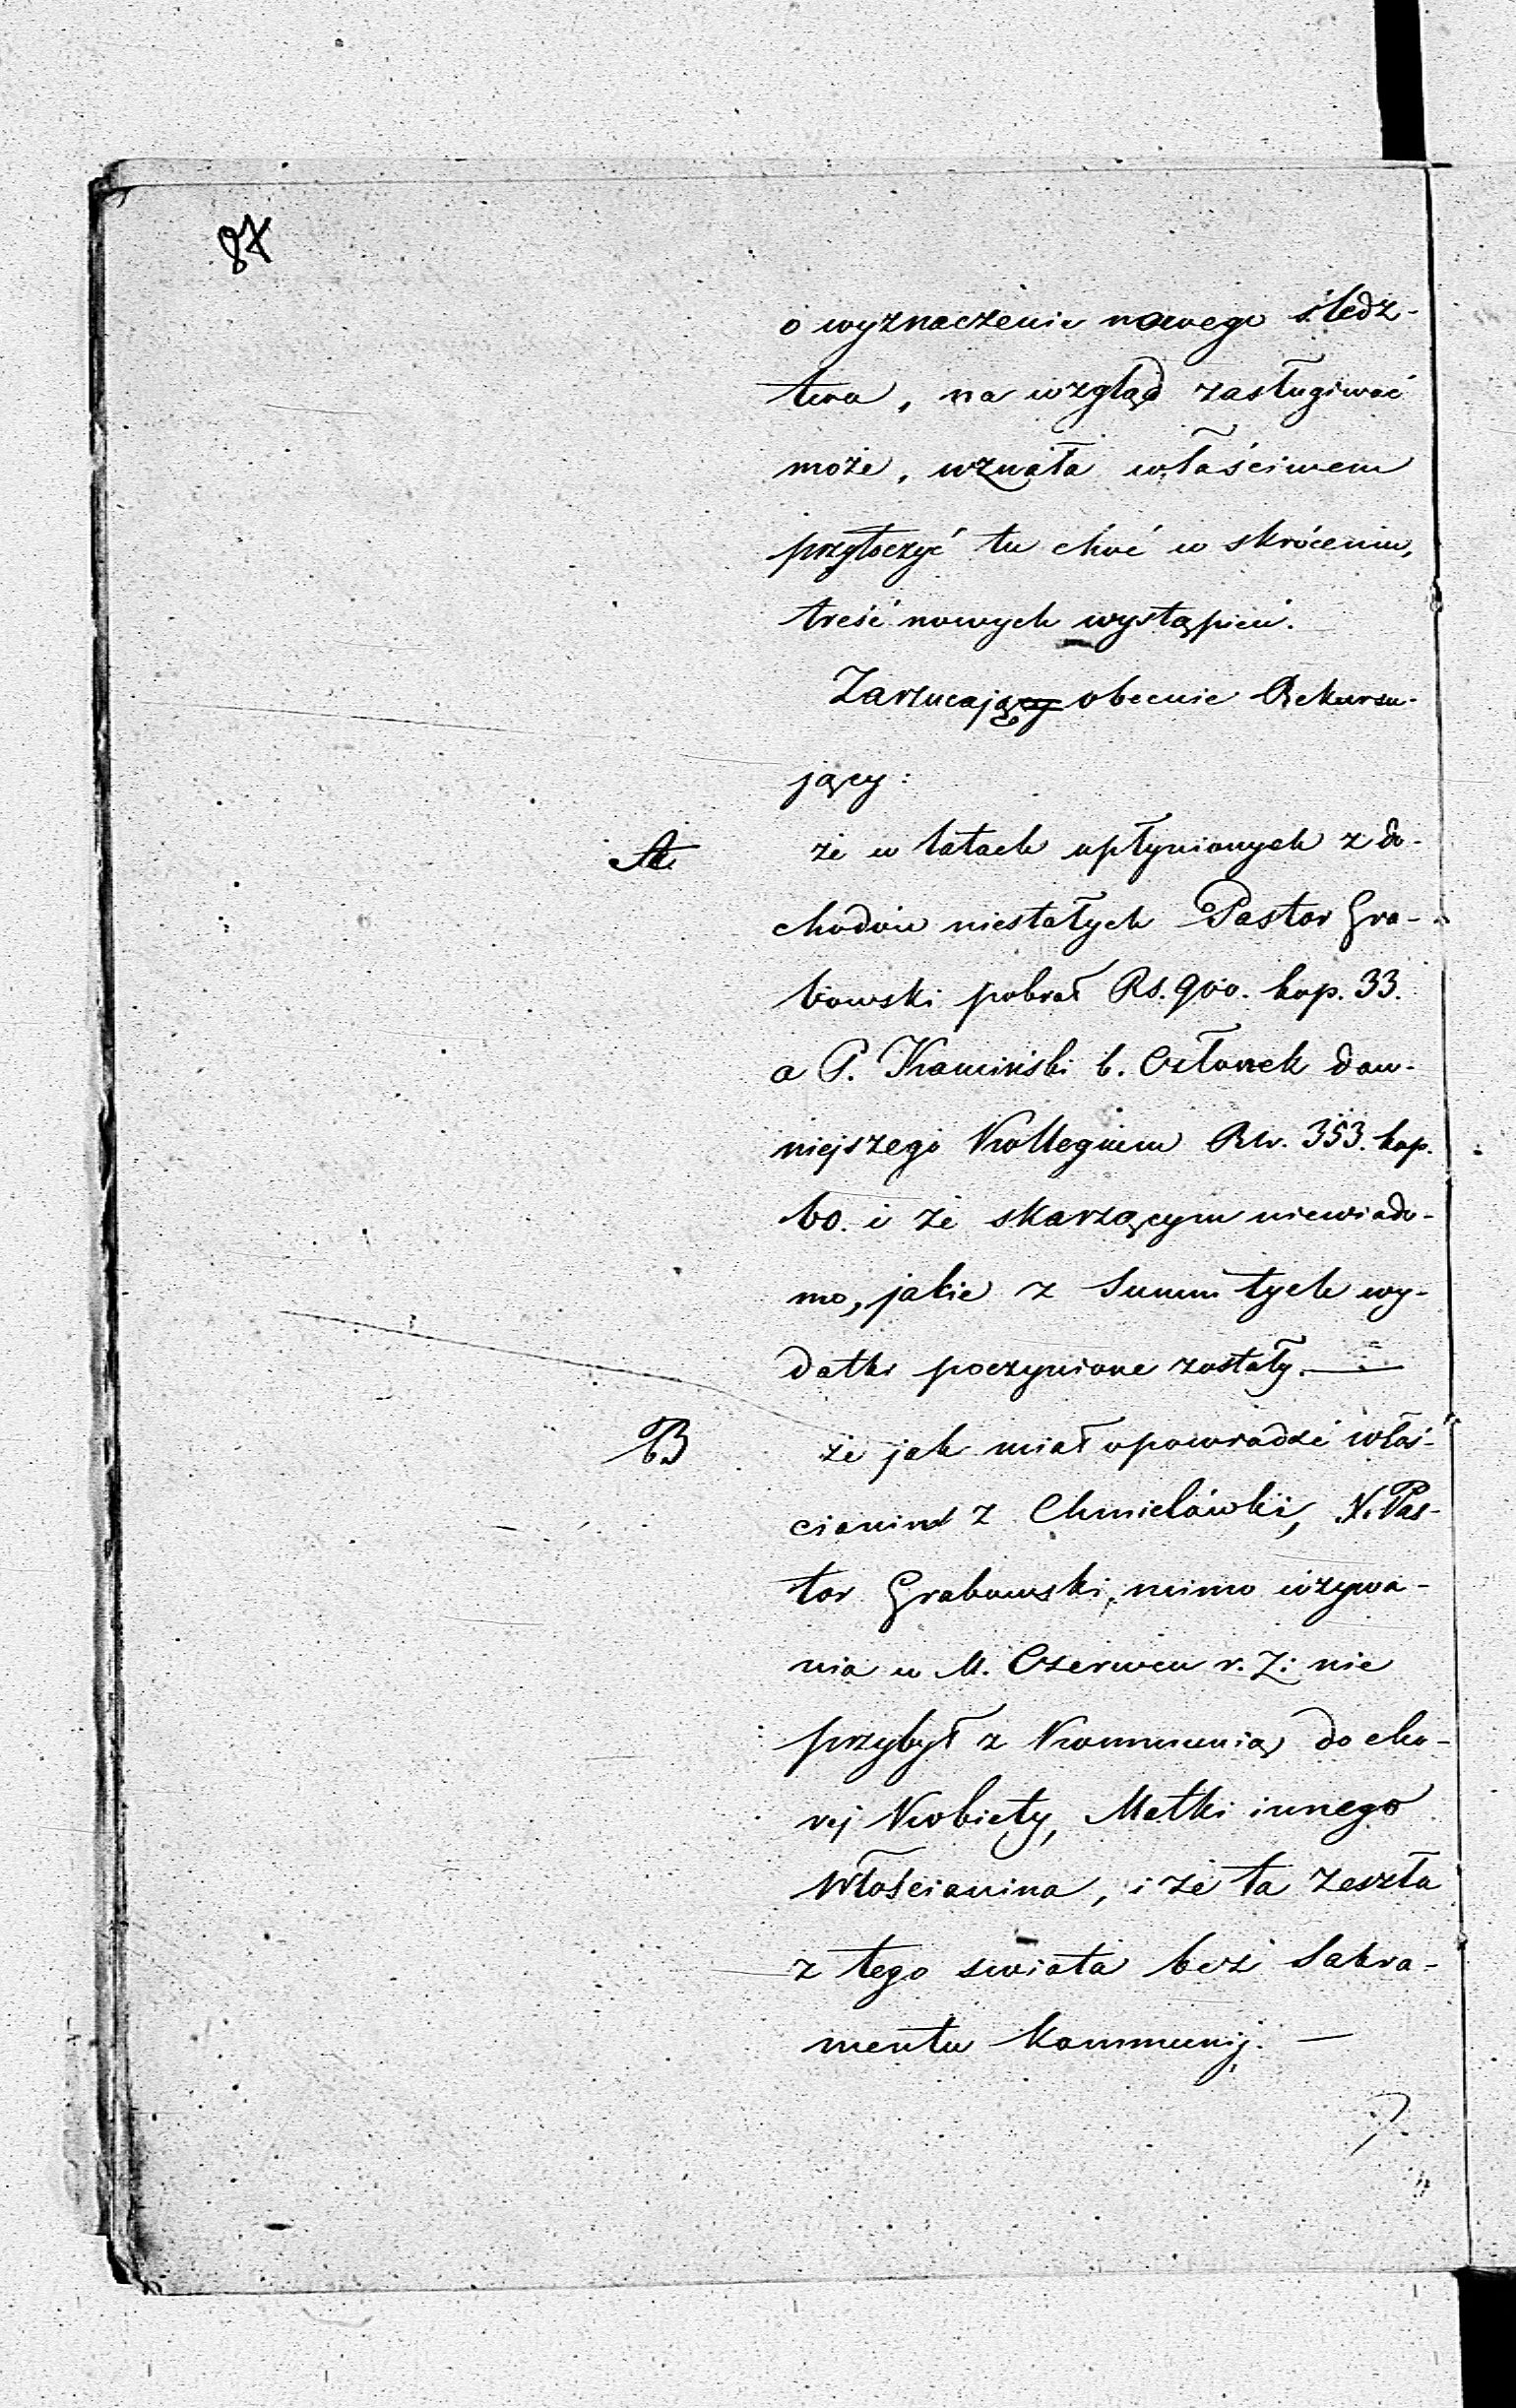 87
o wyznaczenie nowego śledz-
twa, na wzgląd zasługiwać
może, uznała właściwem
przytoczyć tu choć w skróceniu,
treść nowych wystąpień.
Zarzucają obecnie Rekursu-
jący:
A. że w latach upłynionych z do-
chodów niestałych Pastor Gra-
bowski pobrał Rs. 900. kop. 33.
a P. Kamiński b. Członek daw-
niejszego Kollegium Rs. 353. kop.
60. i że skarzącym niewiado-
mo, jakie z Summ tych wy-
datki poczynione zostały. —
B że jak miał opowiadać włoś-
cianin z Chmielówki, X. Pas-
tor Grabowski, mimo wzywa-
nia w M. Czerwcu r. z: nie
przybył z Kommunią do cho-
rej Kobiety, Matki innego
Włościanina, i że ta zeszła
z tego swiata bez Sakra-
mentu Kommunij. —